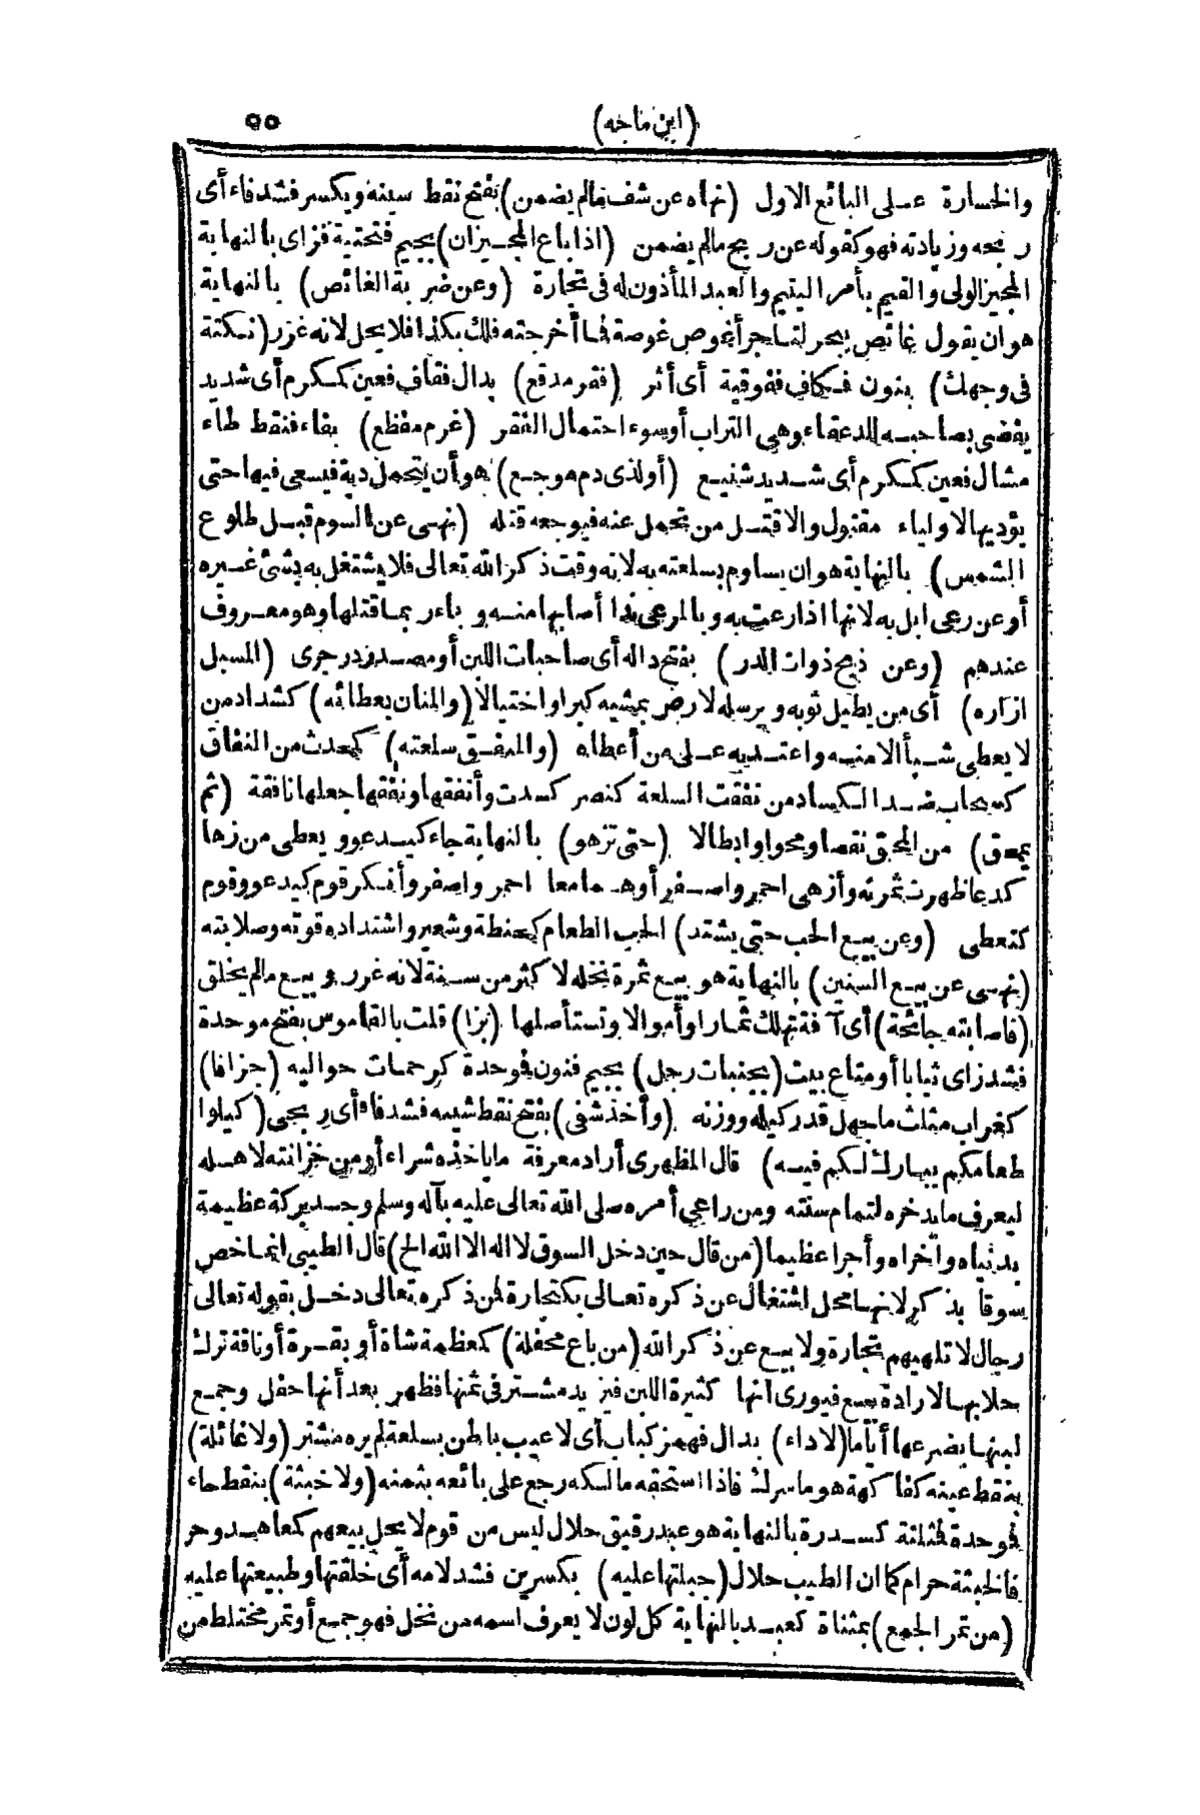 (ابن ماجه) ٥٥
والخسارة على البائع الاول (نهاه عن شف مالم يضمن) بفتح نقط سينه ويكسر فشد فاء أى
ربحه وزيادته فهو كقوله عن ربح مالم يضمن (اذا باع المجيزان) بجيم فتحتية فزاى بالنهاية
المجيز الولى والقيم بأمر اليتيم والعبد المأذون له فى تجارة (وعن ضربة الغائص) بالنهاية
هو ان يقول غائص ببحر لتاجر أغوص غوصة فما أخرجته فلك بكذا فلا يحل لانه غرر (نكتة
فى وجهك) بنون فكاف ففوقية أى أثر (فقر مدقع) بدال فقاف فعين كمكرم أى شديد
يفضى بصاحبه للدعقاء وهى التراب أو سوء احتمال الفقر (غرم مفظع) بفاء فنقط طاء
مشال فعين كمكرم أى شديد شنيع (أو لذى دم موجع) هو أن يتحمل دية فيسعى فيها حتى
يؤديها لاولياء مقتول والا قتل من تحمل عنه فيوجعه قتله (نهى عن السوم قبل طلوع
الشمس) بالنهاية هو ان يساوم بسلعته به لانه وقت ذكر الله تعالى فلا يشتغل به بشئ غيره
أو عن رعى ابل به لانها اذا رعت به وبالمرعى ندا أصابها منه وباء ربما قتلها وهو معروف
عندهم (وعن ذبح ذوات الدر) بفتح داله أى صاحبات اللبن أو مصدر در جرى (المسبل
ازاره) أى من يطيل ثوبه ويرسله لارض بمشيه كبرا واختيالا (والمنان بعطائه) كشداد من
لا يعطى شيأ الا منه واعتد به على من أعطاه (والمنفق سلعته) كمحدث من النفاق
كسحاب ضد الكساد من نفقت السلعة كنصر كسدت وأنفقها ونفقها جعلها نافقة (ثم
يمحق) من المحق نقصا ومحوا وابطالا (حتى تزهو) بالنهاية جاء كيدعو ويعطى من زها
كدعا ظهرت ثمرته وأزهى احمر واصفر أو هما معا احمر واصفر وأنكر قوم كيدعو وقوم
كتعطى (وعن بيع الحب حتى يشتد) الحب الطعام كحنطة وشعير واشتداده قوته وصلابته
(نهى عن بيع السنين) بالنهاية هو بيع ثمرة نخله لاكثر من سنة لانه غرر وبيع مالم يخلق
(فاصابته جائحة) أى آفة تهلك ثمارا وأموالا وتستأصلها (بزا) قلت بالقاموس بفتح موحدة
فشد زاى ثيابا أو متاع بيت (بجنبات رجل) بجيم فنون فوحدة كرحمات حواليه (جزافا)
كغراب مثلث ما جهل قدر كيله ووزنه (وأخذ شفى) بفتح نقط شينه فشد فاء أى ربحى (كيلوا
طعامكم يبارك لكم فيه) قال المظهرى أراد معرفة ما يأخذه شراء أو من خزانته لاهله
ليعرف ما يدخره لتمام سنته ومن راعى أمره صلى الله تعالى عليه بآله وسلم وجد بركة عظيمة
بدنياه وأخراه وأجرا عظيما (من قال حين دخل السوق لا اله الا الله الخ) قال الطيبى انما خص
سوقا بذكر لانها محل اشتغال عن ذكره تعالى بكتجارة فمن ذكره تعالى دخل بقوله تعالى
رجال لا تلهيهم تجارة ولا بيع عن ذكر الله (من باع محفلة) كمعظمة شاة أو بقرة أو ناقة ترك
حلابها لارادة بيع فيورى انها كثيرة اللبن فيزيد مشتر فى ثمنها فظهر بعد أنها حفل وجمع
لبنها بضرعها أياما (لاداء) بدال فهمز كباب أى لا عيب باطن بسلعة لم يره مشتر (ولا غائلة)
بنقط غينه كفاكهة هو ما سرك فاذا استحقه مالكه رجع على بائعه بثمنه (ولا خبثة) بنقط خاء
فوحدة فمثلثة كسدرة بالنهاية هو عبد رقيق حلال ليس من قوم لا يحل بيعهم كمعاهد وحر
فالخبثة حرام كما ان الطيب حلال (جبلتها عليه) بكسرين فشد لامه أى خلقتها وطبيعتها عليه
(من تمر الجمع) بمثناة كعبد بالنهاية كل لون لا يعرف اسمه من نخل فهو جمع أو تمر مختلط من